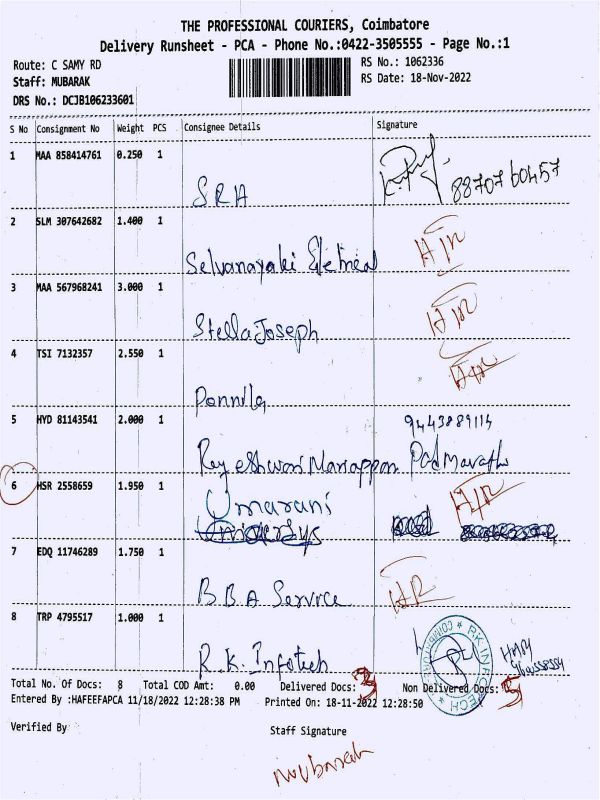 THE PROFESSIONAL COURIERS, Coimbatore
Delivery Runsheet - PCA - Phone No.:0422-3505555 - Page No.:1
Route: C SAMY RD
RS No.: 1062336
Staff: MUBARAK
RS Date: 18-Nov-2022
DRS No.: DCJB106233601
S No Consignment No Weight PCS Consignee Details Signature
1 MAA 858414761 0.250 1
SRH 88707 60457
2 SLM 307642682 1.400 1
Selvanayaki
3 MAA 567968241 3.000 1
Stella Joseph
4 TSI 7132357 2.550 1
Ponnila
5 HYD 81143541 2.000 1
Rajeshwari Mariappan
6 HSR 2558659 1.950 1
Umarani
7 EDQ 11746289 1.750 1
BBA Service
8 TRP 4795517 1.000 1
R.K. Infotech
RK INFOTECH
COIMBATORE
Total No. Of Docs: 8 Total COD Amt: 0.00 Delivered Docs: 3 Non Delivered Docs: 5
Entered By :HAFEEFAPCA 11/18/2022 12:28:38 PM Printed On: 18-11-2022 12:28:50
Verified By
Staff Signature
Mubarak